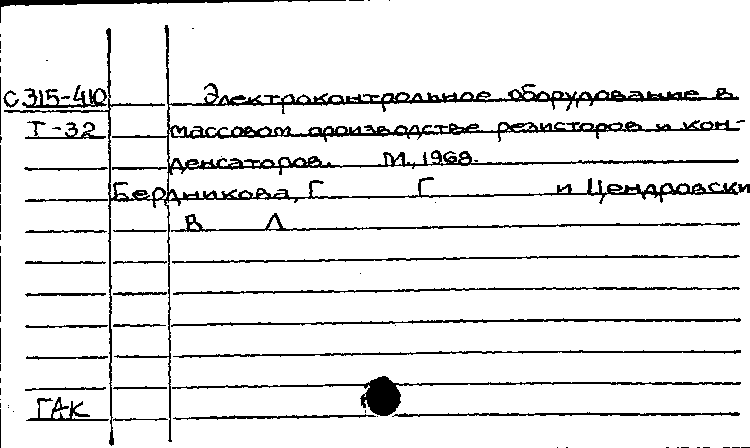 С315-410 Электроконтрольное оборудование в
Т-32 массовом производстве резисторов и кон-
денсаторов. М., 1968.
Бердникова, Г Г и Цендровски
В Л
ГАК